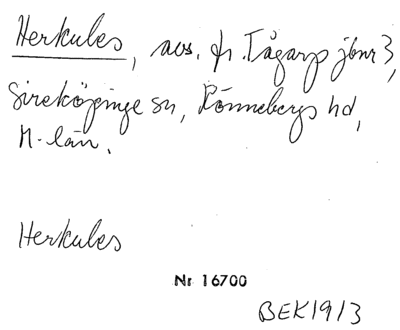 Herkules, avs. fr. Tågarp jbnr 3,
Sireköpinge sn, Rönnebergs hd,
M-län.
Herkules
Nr 16700
BEK1913